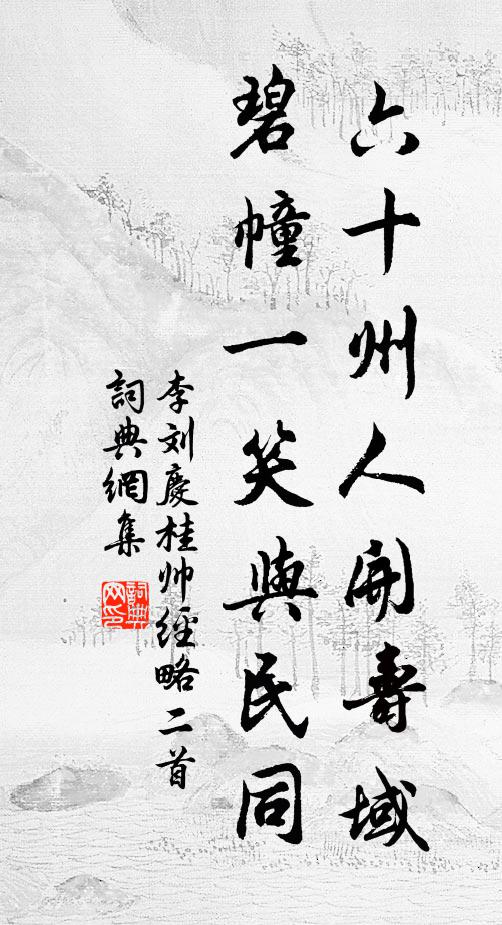 六十州人開壽域
碧幢一笑與民同
李刘慶桂帅經略二首
詞典網集